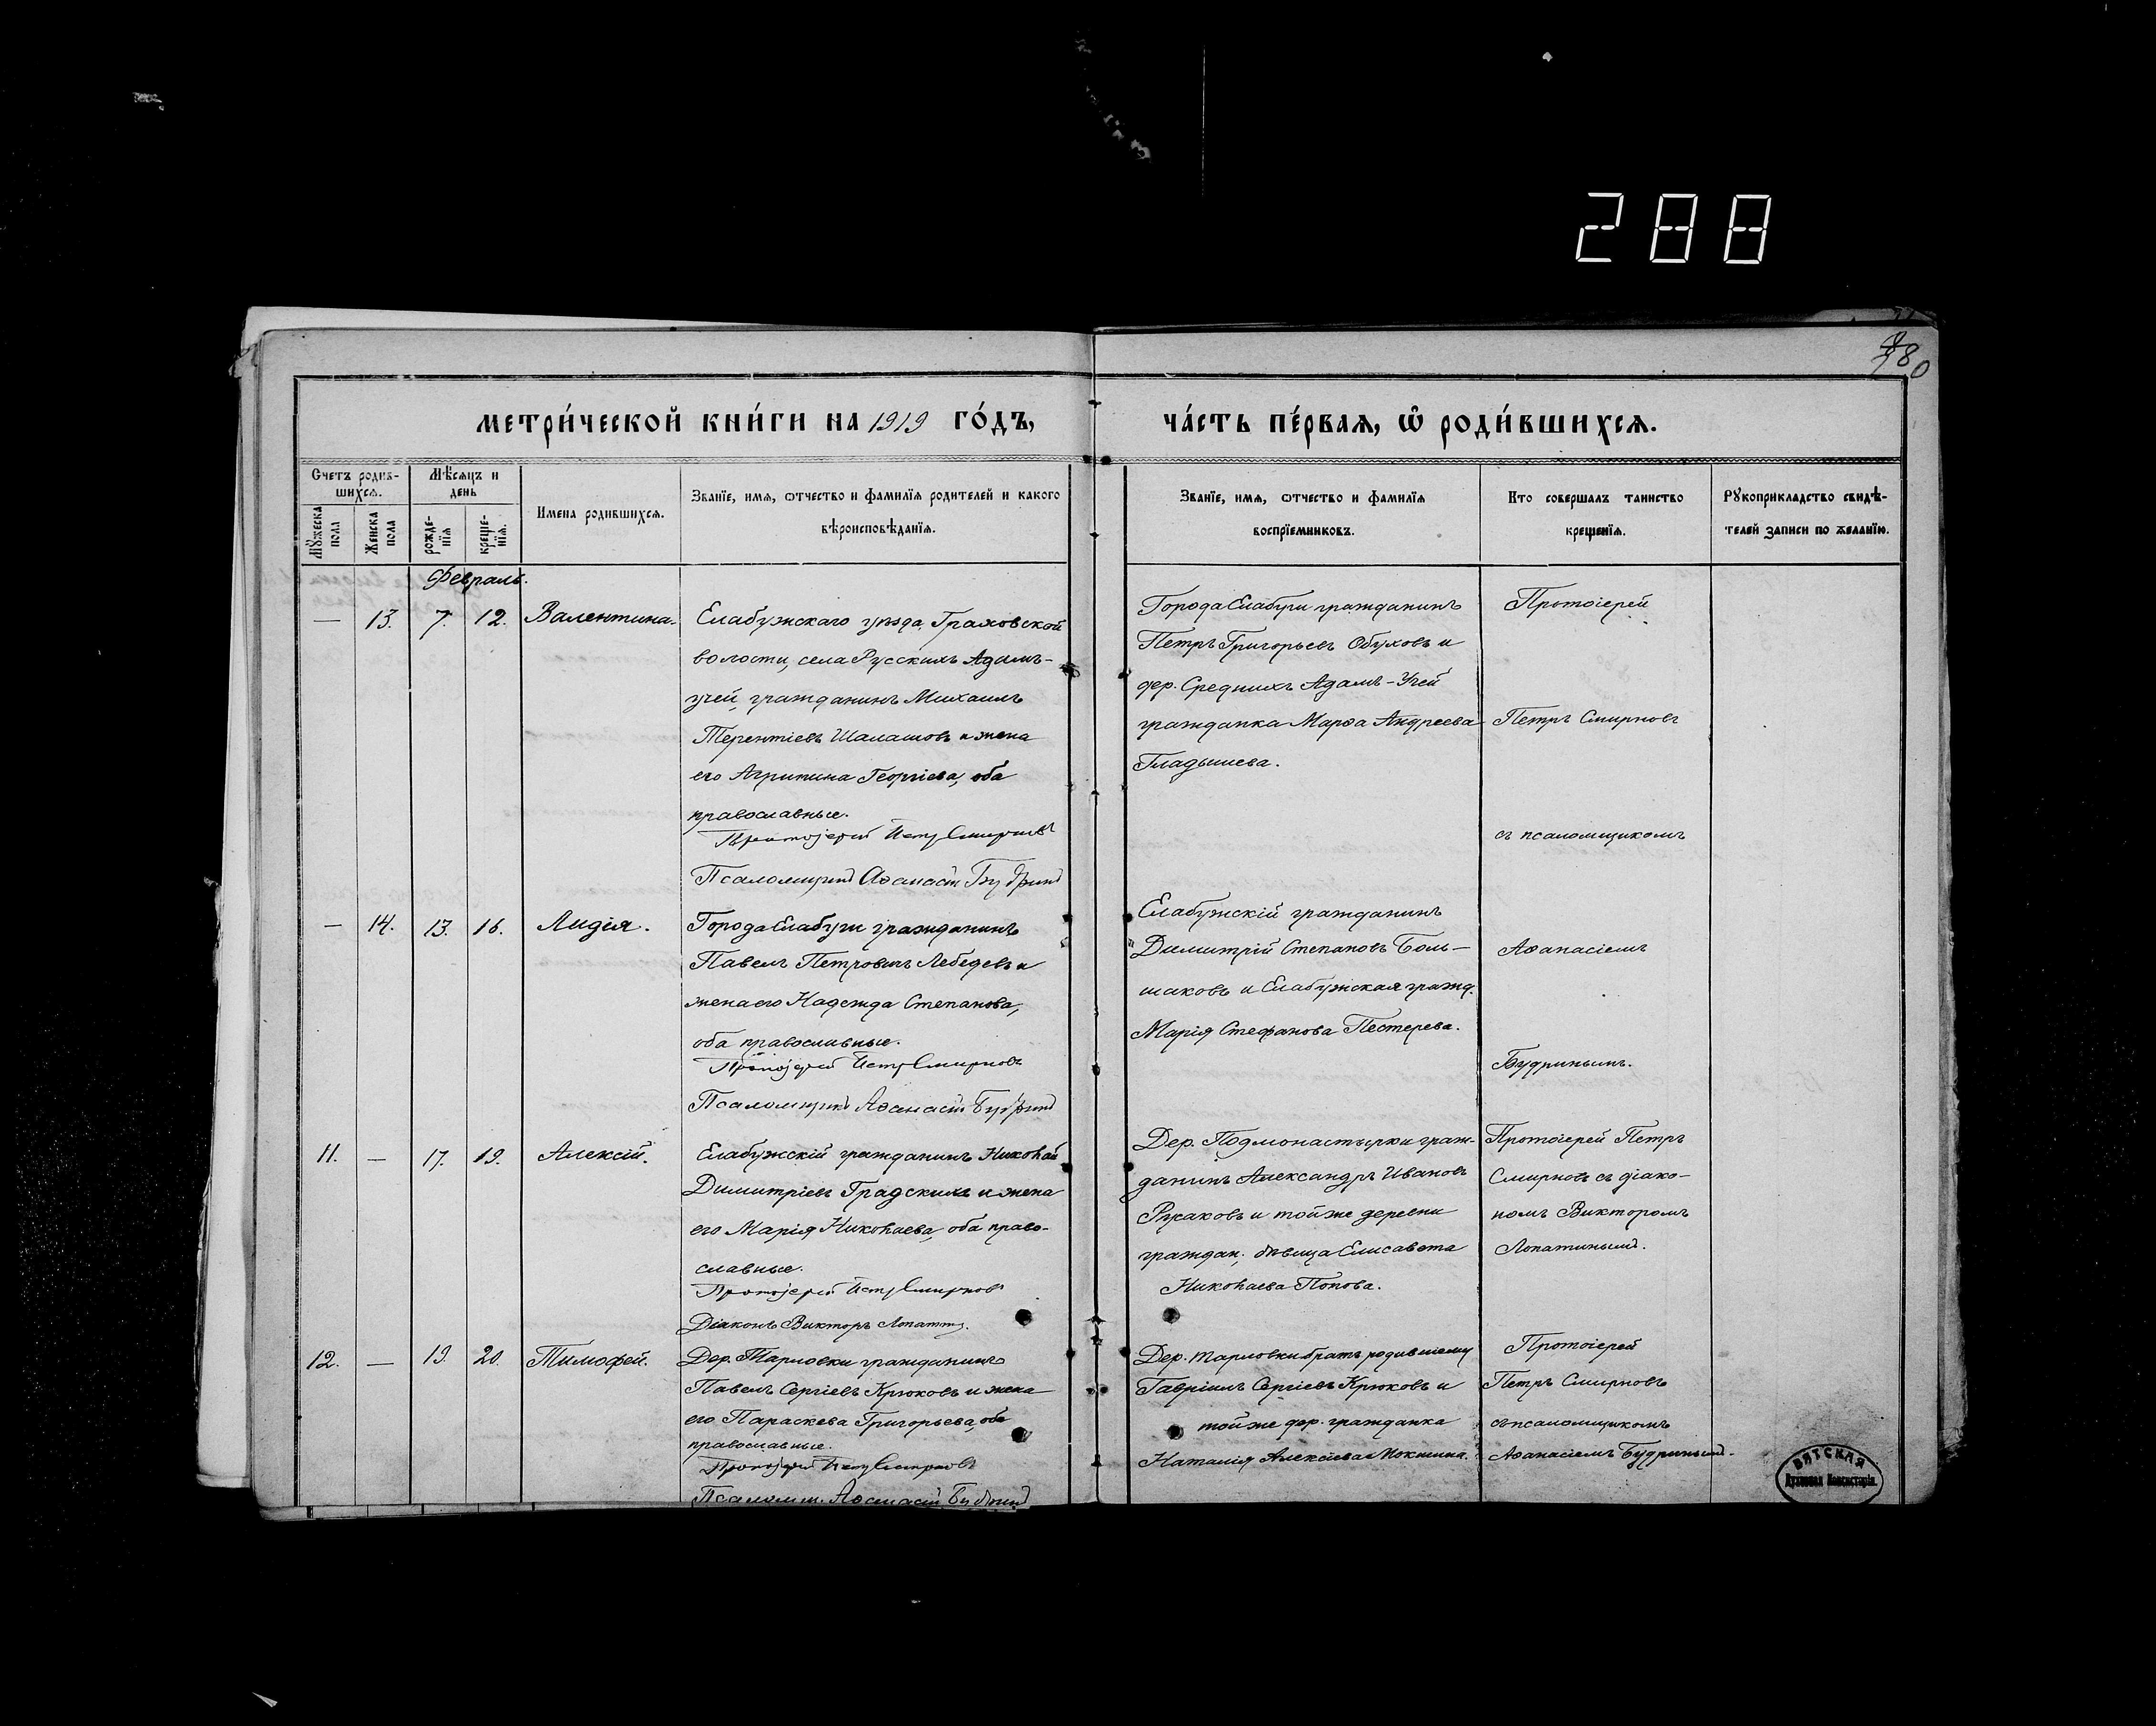 288
80
МЕТРИ́ЧЕСКОЙ КНИ́ГИ НА 1919 ГО́ДЪ,
ЧА́СТЬ ПЕ́РВАЯ, Ѿ РОДИ́ВШИХСЯ.
Счетъ родив-
шихся.
Мѣсяцъ и
день
Имена родившихся.
Званїе, имя, отчество и фамилїя родителей и какого
вѣроисповѣданїя.
Званїе, имя, отчество и фамилїя
воспрїемниковъ.
Кто совершалъ таинство
крещенїя.
Рукоприкладство свидѣ-
телей записи по желанїю.
Мужеска
пола
Женска
пола
рожде-
нїя
креще-
нїя.
Февраль.
— 13. 7. 12. Валентина.
Елабужскаго уѣзда, Граховской
волости, села Русскихъ Адамъ-
учей, гражданинъ Михаилъ
Терентіевъ Шалашовъ и жена
его Агрипина Георгіева, оба
православные.
Протоіерей Петръ Смирновъ
Псаломщикъ Аѳанасій Будринъ
Города Елабуги гражданинъ
Петръ Григорьевъ Обуховъ и
дер. Среднихъ Адамъ-Учей
гражданка Марѳа Андреева
Гладышева.
Протоіерей
Петръ Смирновъ
съ псаломщикомъ
— 14. 13. 16. Лидія.
Города Елабуги гражданинъ
Павелъ Петровичъ Лебедевъ и
жена его Надежда Степанова,
оба православные.
Протоіерей Петръ Смирновъ
Псаломщикъ Аѳанасій Будринъ
Елабужскій гражданинъ
Димитрій Степановъ Боль-
шаковъ и Елабужская гражд.
Марія Стефанова Пестерева.
Аѳанасіемъ
Будринымъ.
11. — 17. 19. Алексій.
Елабужскій гражданинъ Николай
Димитріевъ Градскихъ и жена
его Марія Николаева, оба право-
славные.
Протоіерей Петръ Смирновъ
Діаконъ Викторъ Лопатин.
Дер. Подмонастырки граж-
данинъ Александръ Ивановъ
Русаковъ и той же деревни
граждан. дѣвица Елисавета
Николаева Попова.
Протоіерей Петръ
Смирновъ съ діако-
номъ Викторомъ
Лопатинымъ.
12. — 19. 20. Тимофей.
Дер. Тарловки гражданинъ
Павелъ Сергіевъ Крюковъ и жена
его Параскева Григорьева, оба
православные.
Протоіерей Петръ Смирновъ
Псаломщ. Аѳанасій Будринъ
Дер. Тарловки братъ родившему
Гавріилъ Сергіевъ Крюковъ и
той же дер. гражданка
Наталія Алексіева Мокшина.
Протоіерей
Петръ Смирновъ
съ псаломщикомъ
Аѳанасіемъ Будринымъ.
ВЯТСКАЯ
Духовная Консисторія.